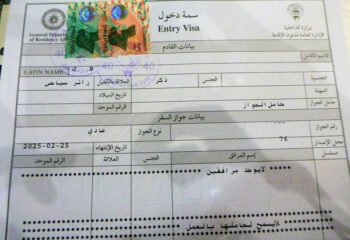 سمة دخول
وزارة الداخلية
General Department
Entry Visa
الإدارة العامة لشئون الإقامة
of Residency
بيانات القادم
الاسم الكامل
LATIN NAME
الجنسية
الجنس
ذكر
العلاقة بالكفيل
زائر سياحي
المهنة
تاريخ الميلاد
حامل الجواز
حامل الجواز
الرقم الموحد
بيانات جواز السفر
رقم الجواز
نوع الجواز
عادي
محل الإصدار
76
تاريخ الإنتهاء
2025-02-25
إسم المرافق
الجنس
العلاقة
تاريخ الميلاد
الرقم الموحد
لايوجد مرافقين
لايسمح لحاملها بالعمل